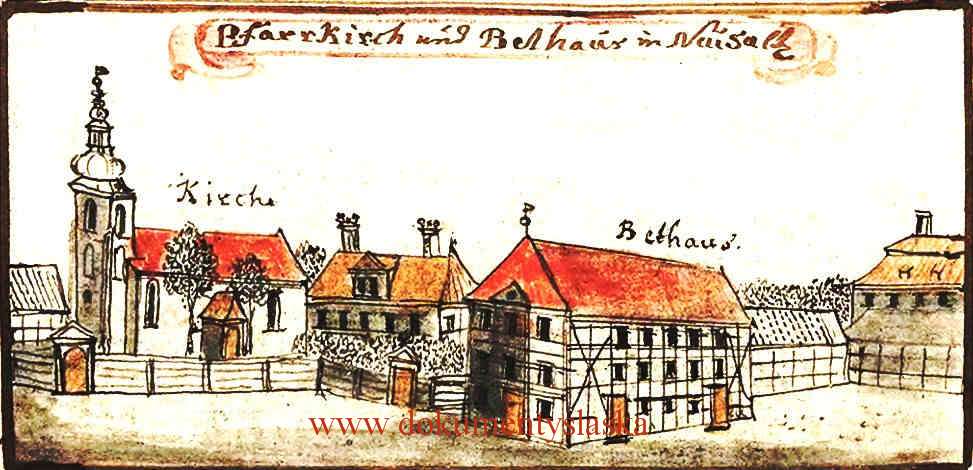 Pfarrkirch und Bethaus in Neusaltz
Kirche
Bethaus.
www.dokumentyslaska